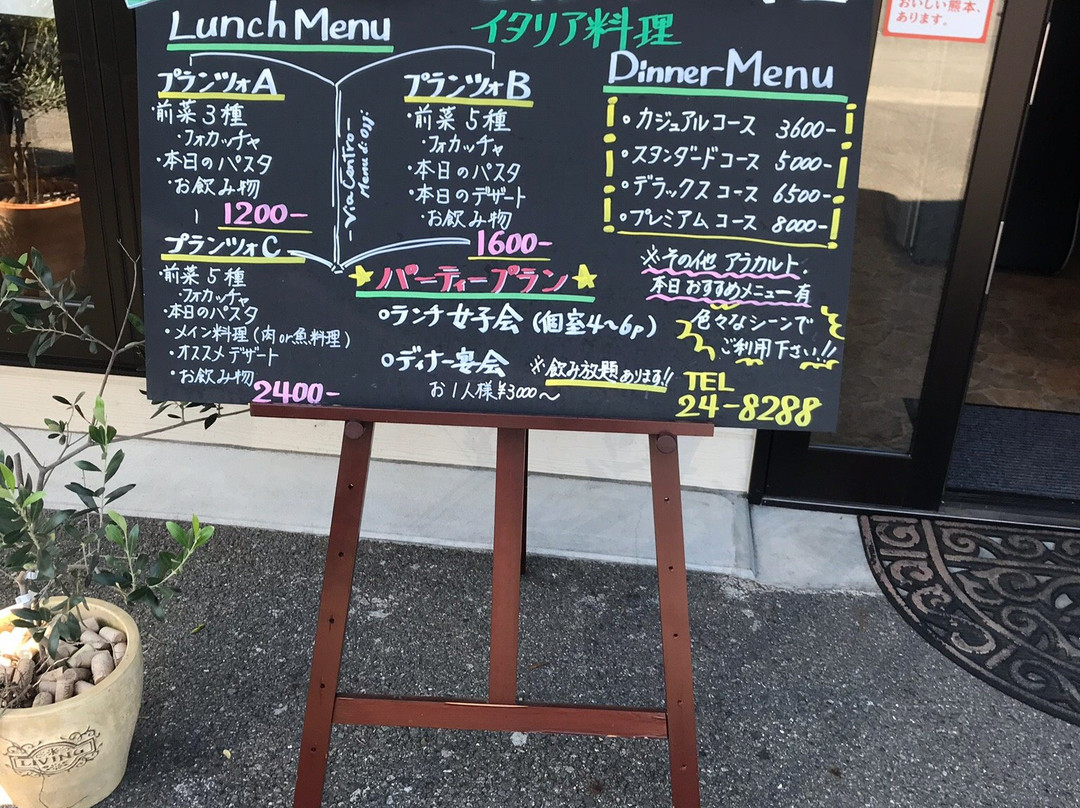 Lunch Menu
イタリア料理
プランツォA
・前菜3種
・フォカッチャ
・本日のパスタ
・お飲み物
1200-
-Via Contro-
Menu di oggi
プランツォB
・前菜5種
・フォカッチャ
・本日のパスタ
・本日のデザート
・お飲み物
1600-
プランツォC
前菜5種
・フォカッチャ
・本日のパスタ
・メイン料理(肉or魚料理)
・オススメデザート
・お飲み物
2400-
Dinner Menu
・カジュアルコース 3600-
・スタンダードコース 5000-
・デラックスコース 6500-
・プレミアムコース 8000-
※その他 アラカルト.
本日おすすめメニュー有
色々なシーンで
ご利用下さい!!
★パーティープラン★
○ランチ女子会(個室4~6p)
○ディナー宴会 ※飲み放題あります!!
お1人様¥3000~
TEL
24-8288
おいしい熊本、
あります。
LIVING